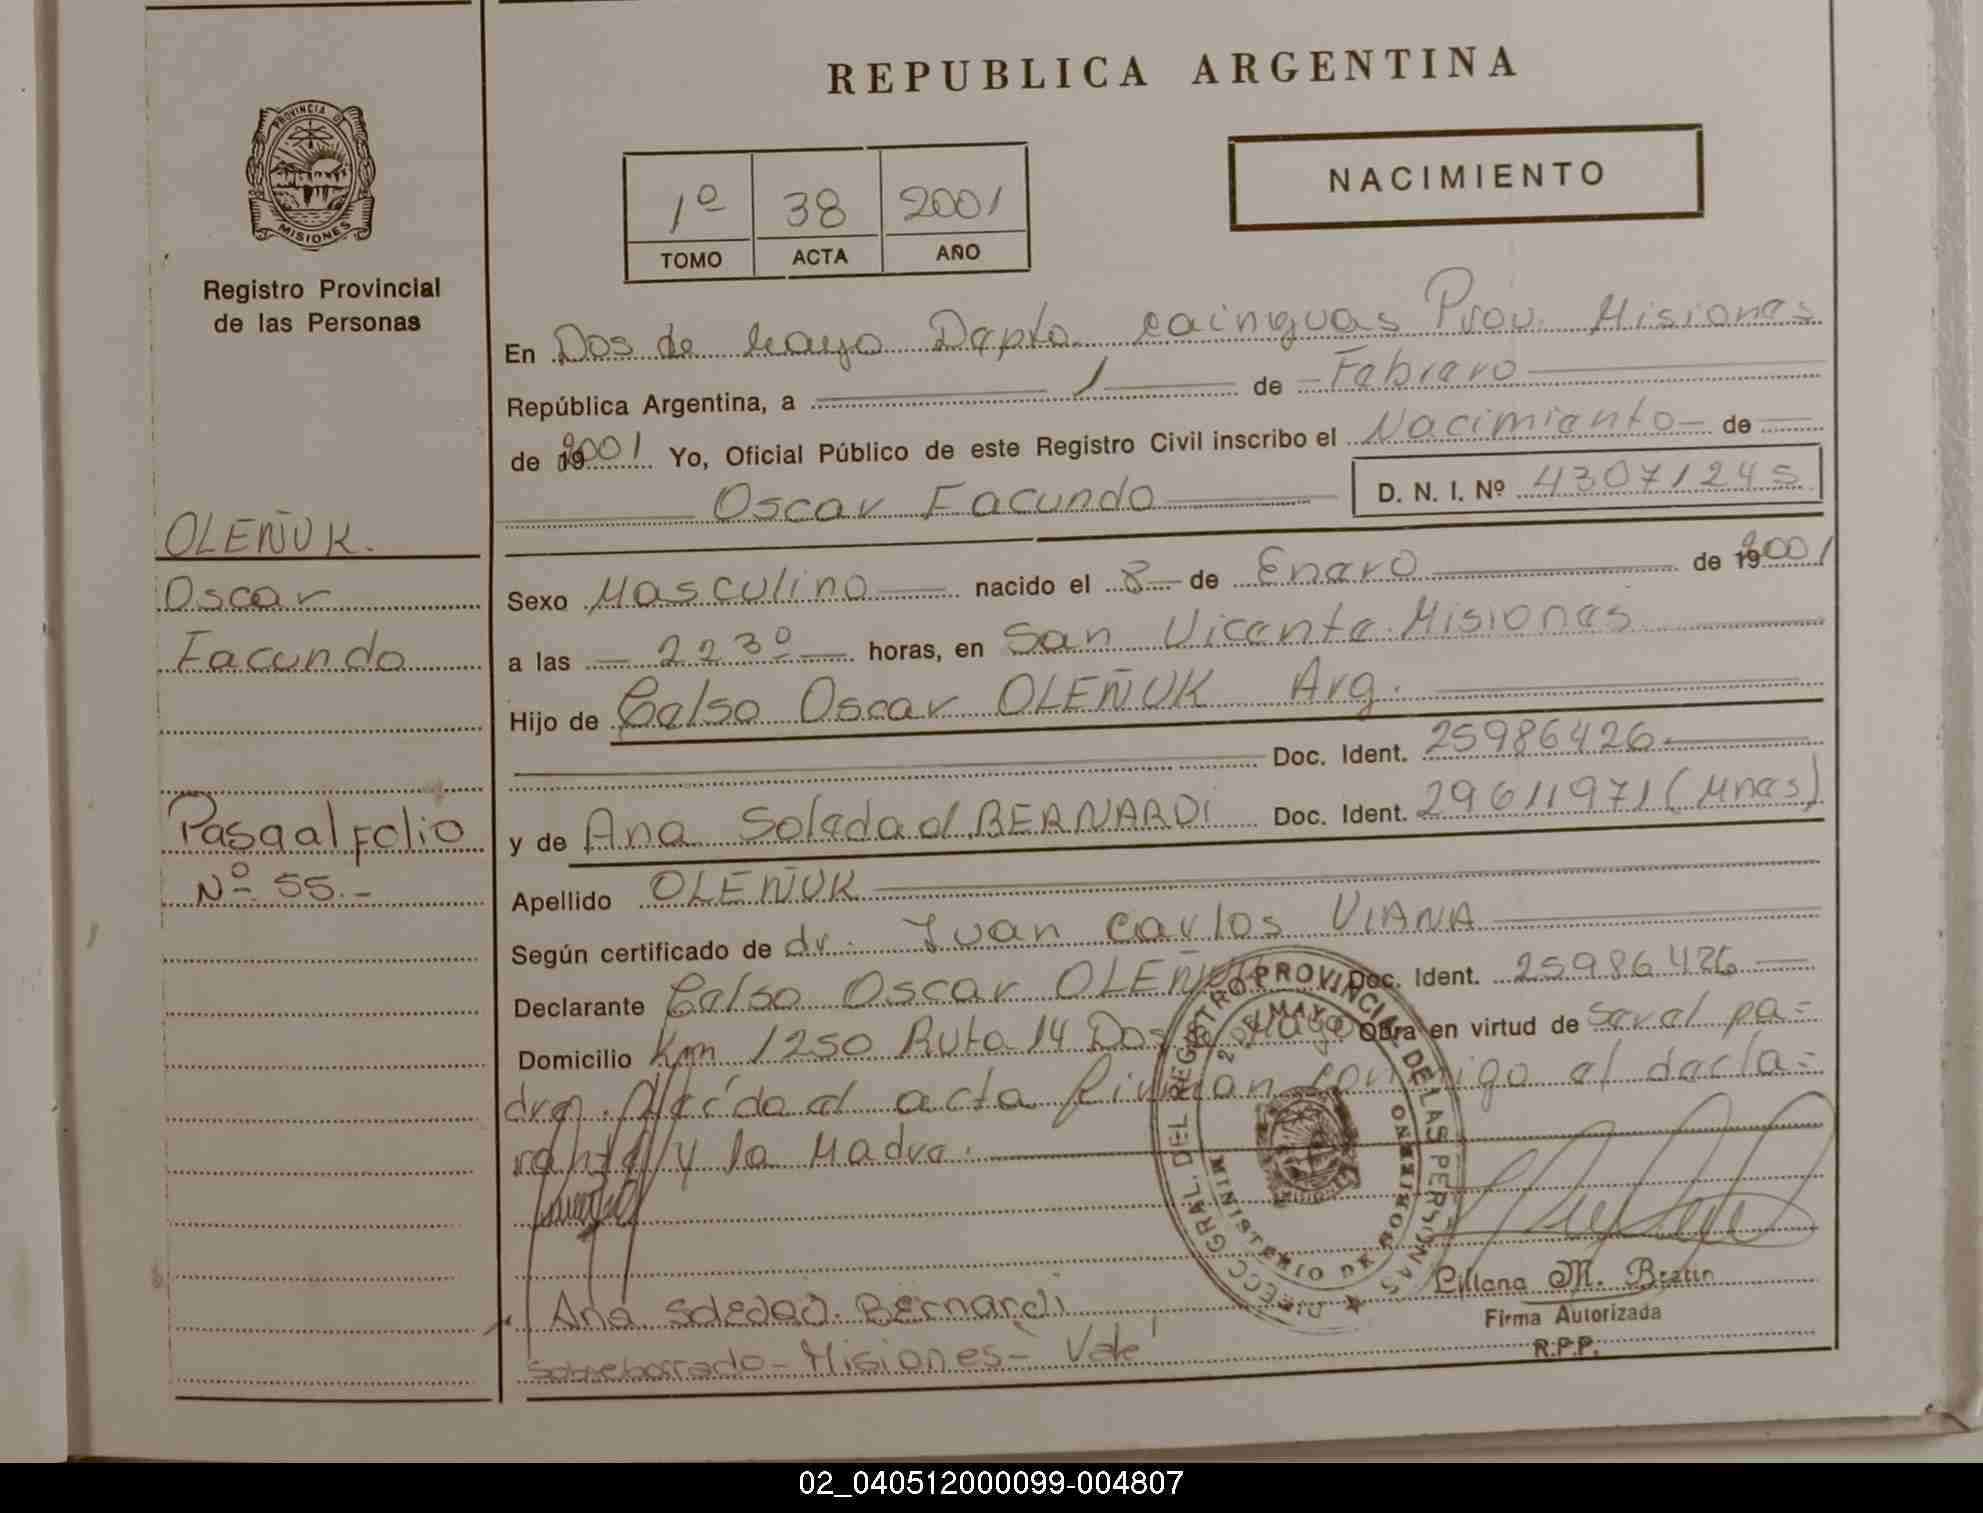 REPUBLICA ARGENTINA
NACIMIENTO
1º 38 2001
TOMO ACTA AÑO
PROVINCIA DE
MISIONES
Registro Provincial
de las Personas
OLEÑUK.
Oscar
Facundo
Pasa al folio
Nº 55.-
En Dos de Mayo Depto Cainguas Prov. Misiones
República Argentina, a 1 de Febrero
de 2001 Yo, Oficial Público de este Registro Civil inscribo el Nacimiento de
Oscar Facundo D. N. I. Nº 43071245
Sexo Masculino nacido el 8 de Enero de 2001
a las 2230 horas, en San Vicente Misiones
Hijo de Celso Oscar OLEÑUK Arg.
Doc. Ident. 25986426
y de Ana Soledad BERNARDI Doc. Ident. 29611971 (Mnes)
Apellido OLEÑUK
Según certificado de dr. Juan Carlos VIANA
Declarante Celso Oscar OLEÑUK Doc. Ident. 25986426
Domicilio Km 1250 Ruta 14 Dos de Mayo Obra en virtud de Ser el pa=
dre. Leída el acta firman conmigo el decla=
rante y la Madre.
DIRECC. GRAL. DEL REGISTRO PROVINCIAL DE LAS PERSONAS
2 DE MAYO
MINISTERIO DE GOBIERNO
Liliana M. Bratin
Ana Soledad Bernardi
Firma Autorizada
R.P.P.
Sobreborrado - Misiones - Vale
02_040512000099-004807